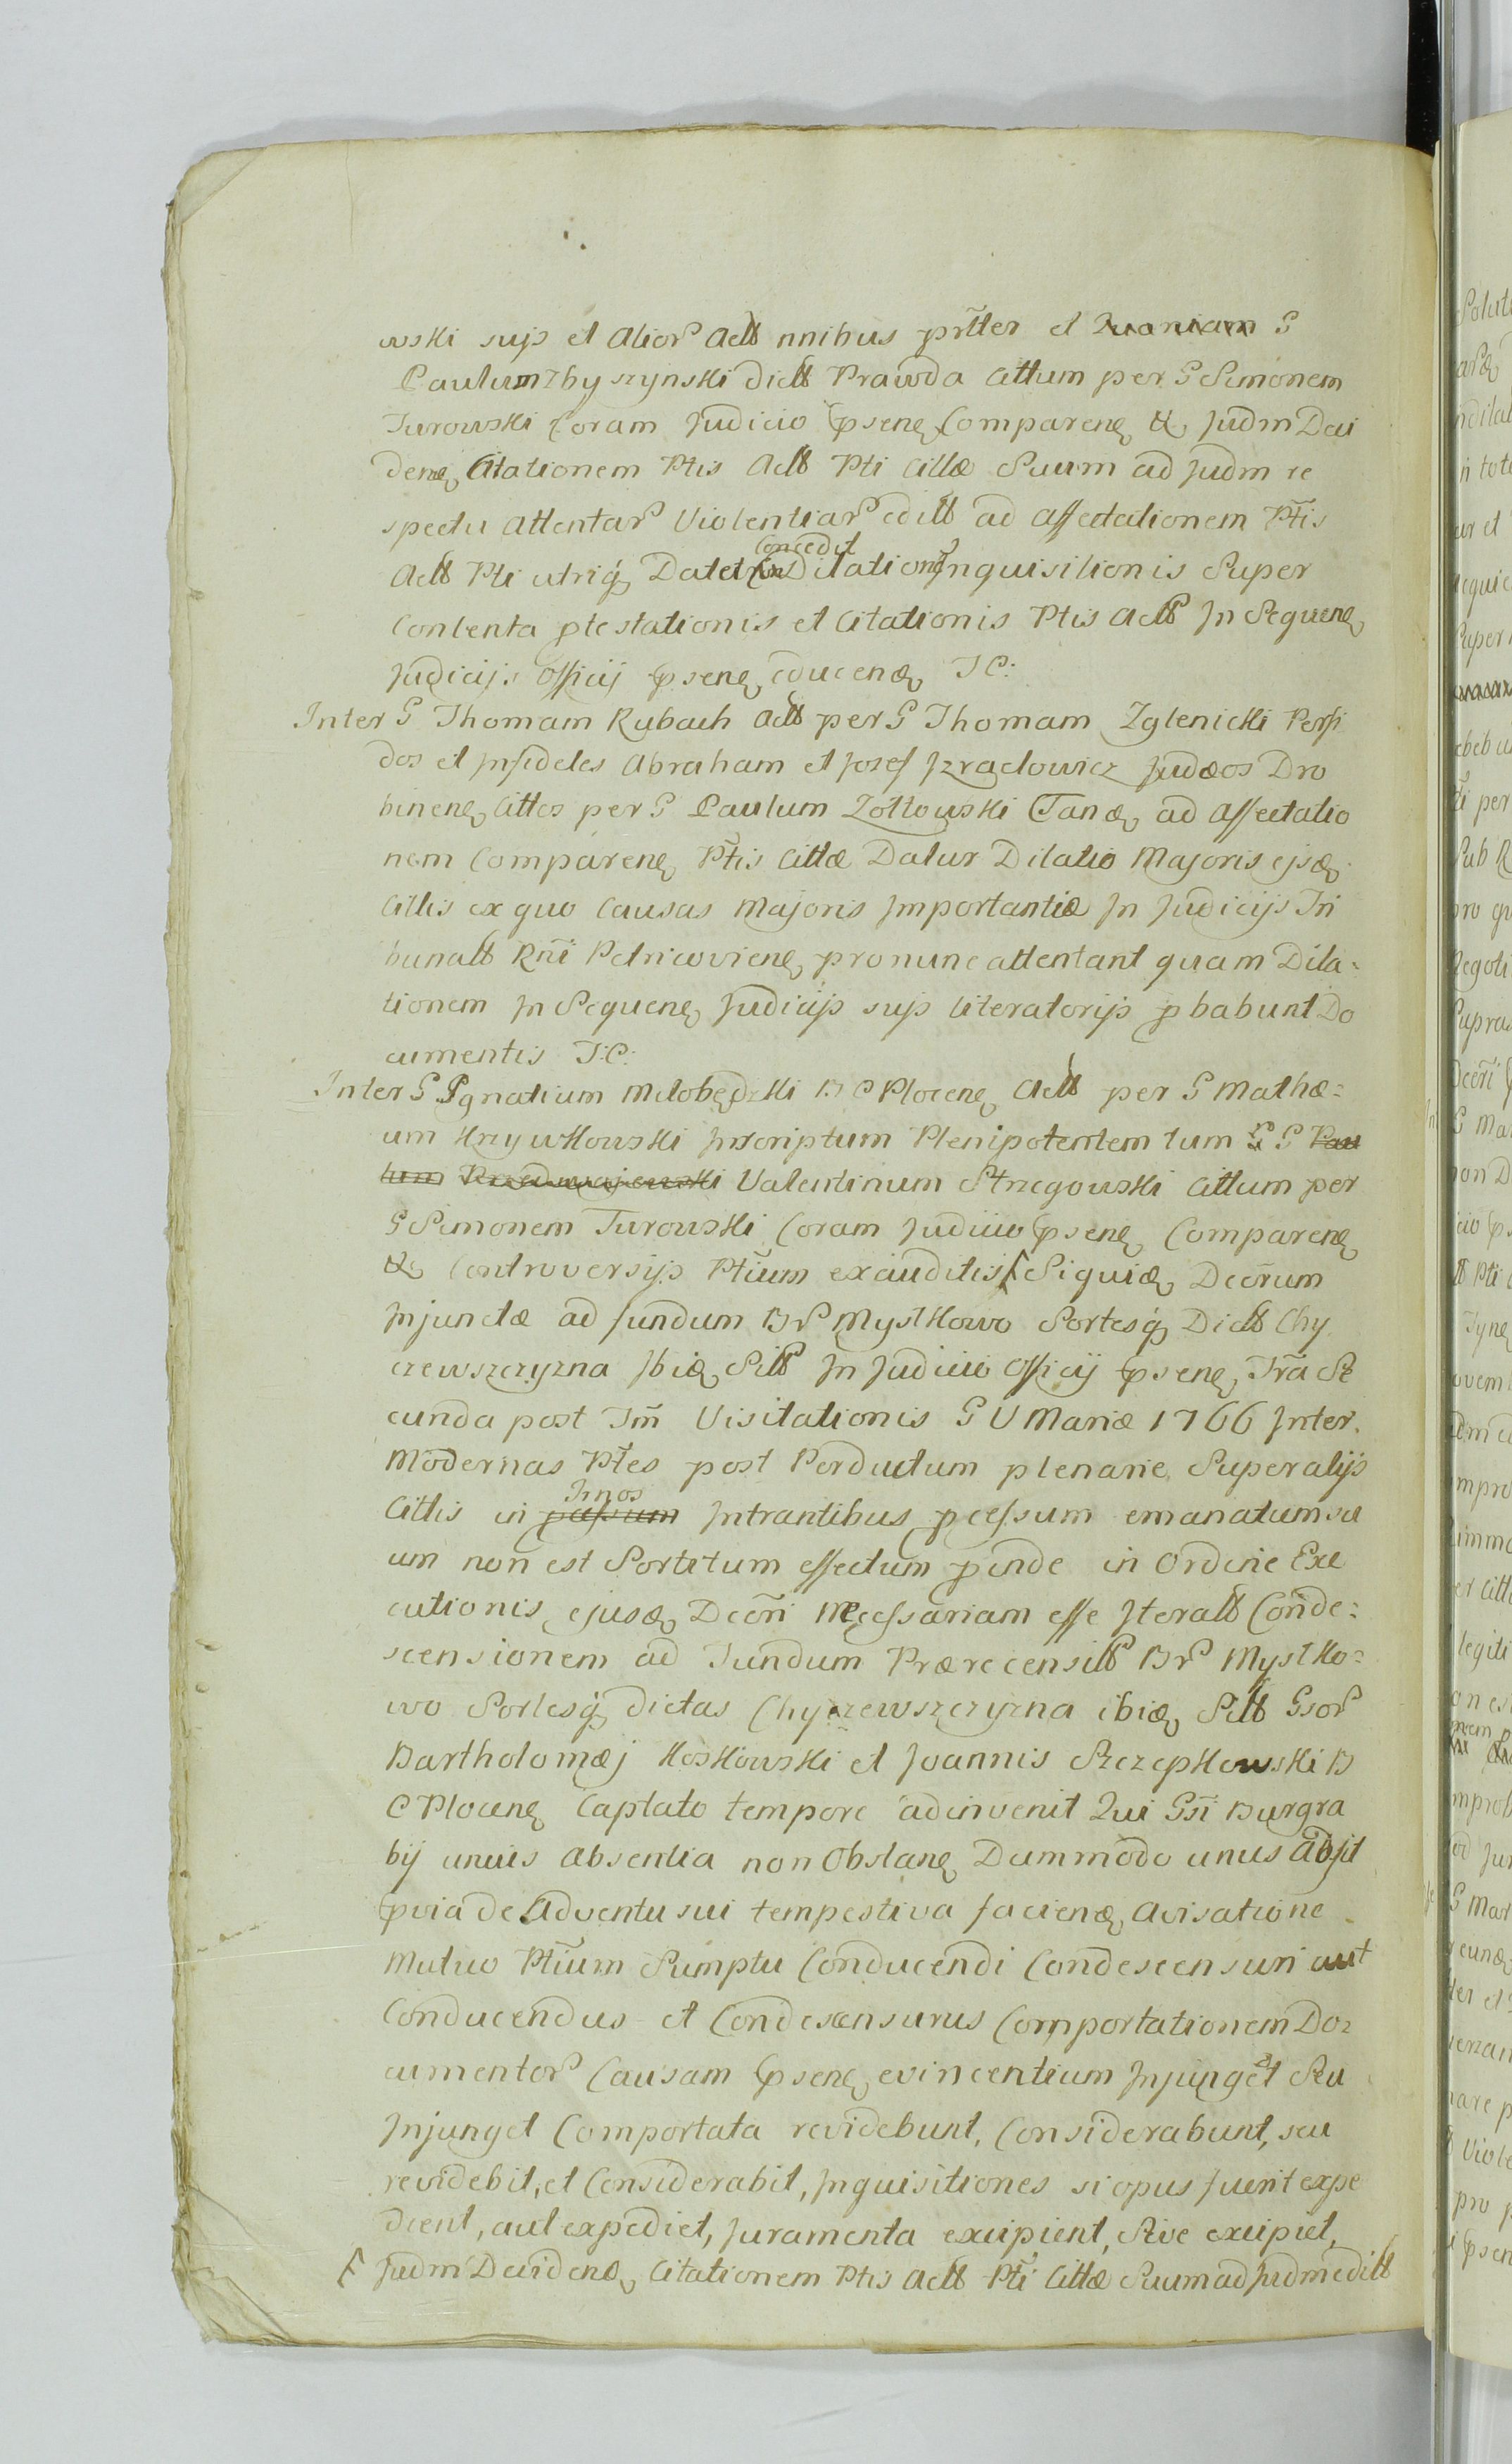 wski sujs et alior act nnibus prtter et Quoniam G
Paulum Zbyszynski dict Prawda Cittum per G Simonem
Turowski Coram Judicio psenq Comparenq & Judm Dei
denq Citationem Ptis Act Pti Cittæ Suum ad Judm re
spectu attentar Violentiar edit ad affectationem Ptis
Act Pti utriq Datet Concedit Dilationes Inquisitionis Super
Contenta ptestationis et Citationis Ptis Act In Sequenq
Judicijs Officij psenq educenq T C:
Inter G Thomam Rubach Act per G Thomam Zglenicki Perfi
dos et Infideles Abraham et Josef Izraelowicz Judæos Dro
binenq Cittos per G Paulum Zołtowski Tanq ad Affectatio
nem Comparenq Ptis Cittæ Datur Dilatio Majoris ejsq
Cittis ex quo Causas Majoris Importantiæ In Judicijs Tri
bunalt Rni Petricoviene pro nunc attentant quam Dila:
tionem In Sequenq Judicijs sujs literatorijs pbabunt Do
cumentis T:C:
Inter G Ignatium Miłobędzki B C Plocenq Act per G Mathæ:
um Krzywkowski Inscriptum Plenipotentem tum G G Pau
lum Valentinum Strzegowski Cittum per
G Simonem Turowski Coram Judicio psenq Comparenq
& Controversijs Ptium exauditis Siquiq Decrum
Injunctæ ad fundum Br Mystkowo Sortesq Dict Chy
czewszczyzna Ibiq Sitt In Judicio Officij psenq Tra Se
cunda post Tm Visitationis G V Mariæ 1766 Inter
Modernas Ptes post Perductum plenarie Super alijs
Cittis in passum Trnos Intrantibus pcessum emanatum su
um non est Sortitum effectum pinde in Ordine Exe
cutionis ejusq Decri Necessariam esse Iteratt Conde:
scensionem ad Fundum Prærecensitt Br Mystko:
wo Sortesq dictas Chyczewszczyzna ibiq Sitt Gsor
Bartholomæj Koskowski et Joannis Szczepkowski B
C Plocenq Captato tempore adinvenit Qui Gsi Burgra
bij unius absentia non Obstanq Dummodo unus Adsit
pvia de Adventu sui tempestiva facienq avisatione
Mutuo Ptium Sumptu Conducendi Condescensuri aut
Conducendus et Condescensurus Comportationem Do:
cumentor Causam psenq evincentium Injunget Seu
Injunget Comportata revidebunt, Considerabunt, seu
revidebit, et Considerabit, Inquisitiones si opus fuerit expe
dient, aut expediet, Juramenta excipient, Sive excipiet,
F Judm Deidenq Citationem Ptis Act Pti Cittæ Suum ad Judm edit